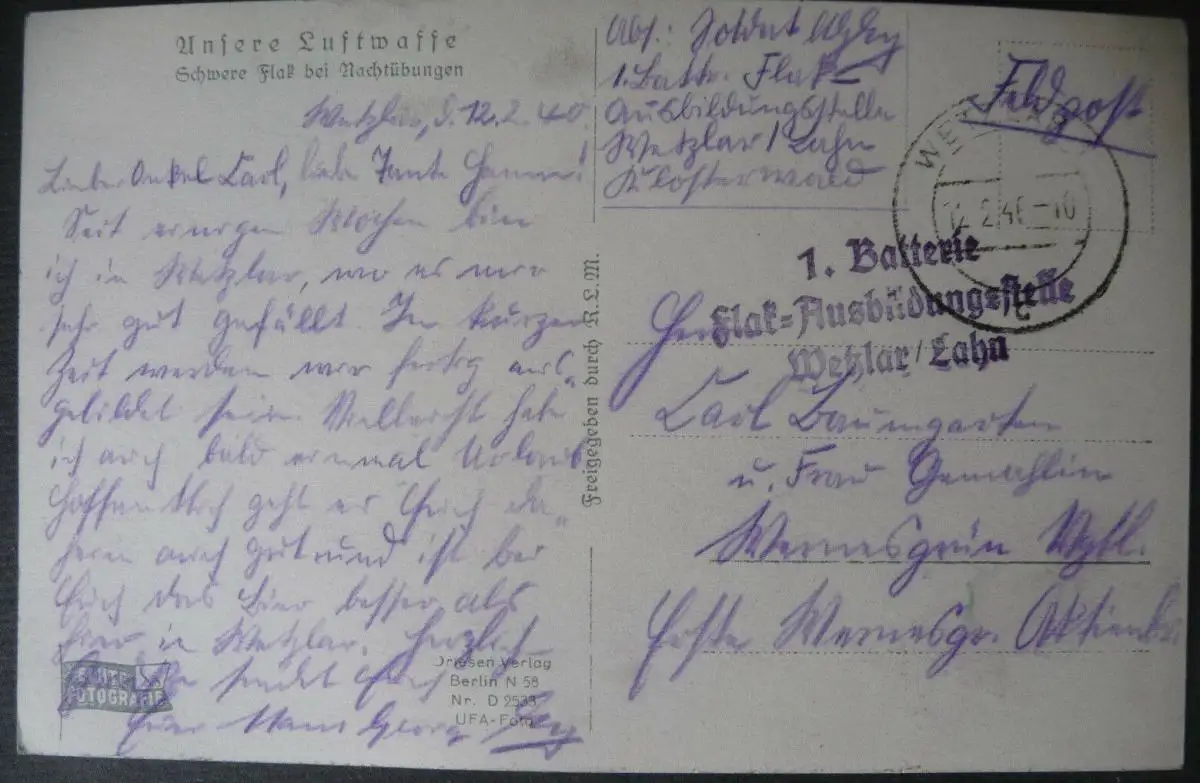 Unsere Luftwaffe
Schwere Flak bei Nachtübungen
Wetzlar, d. 12.2.40
Lieber Onkel Carl, liebe Tante Hanne!
Seit einigen Wochen bin
ich in Wetzlar, wo es mir
sehr gut gefällt. In kurzer
Zeit werden wir fertig aus-
gebildet sein. Vielleicht habe
ich auch bald einmal Urlaub.
Hoffentlich geht es Euch da-
heim auch gut und ist bei
Euch das Bier besser als
hier in Wetzlar. Herzlich
sendet Euch
Euer Hans Georg
ECHTE
FOTOGRAFIE
Driesen Verlag
Berlin N 58
Nr. D 2533
UFA-Foto
Freigegeben durch R.L.M.
Abs.: Soldat
1. Battr. Flak-
Ausbildungsstelle
Wetzlar/Lahn
Klosterwald
Feldpost
WETZLAR
12.2.40-10
1. Batterie
Flak-Ausbildungsstelle
Wetzlar/Lahn
Herrn
Carl Baumgarten
u. Frau Gemahlin
Wernesgrün Vgtl.
Erste Wernesgr. Aktienbr.